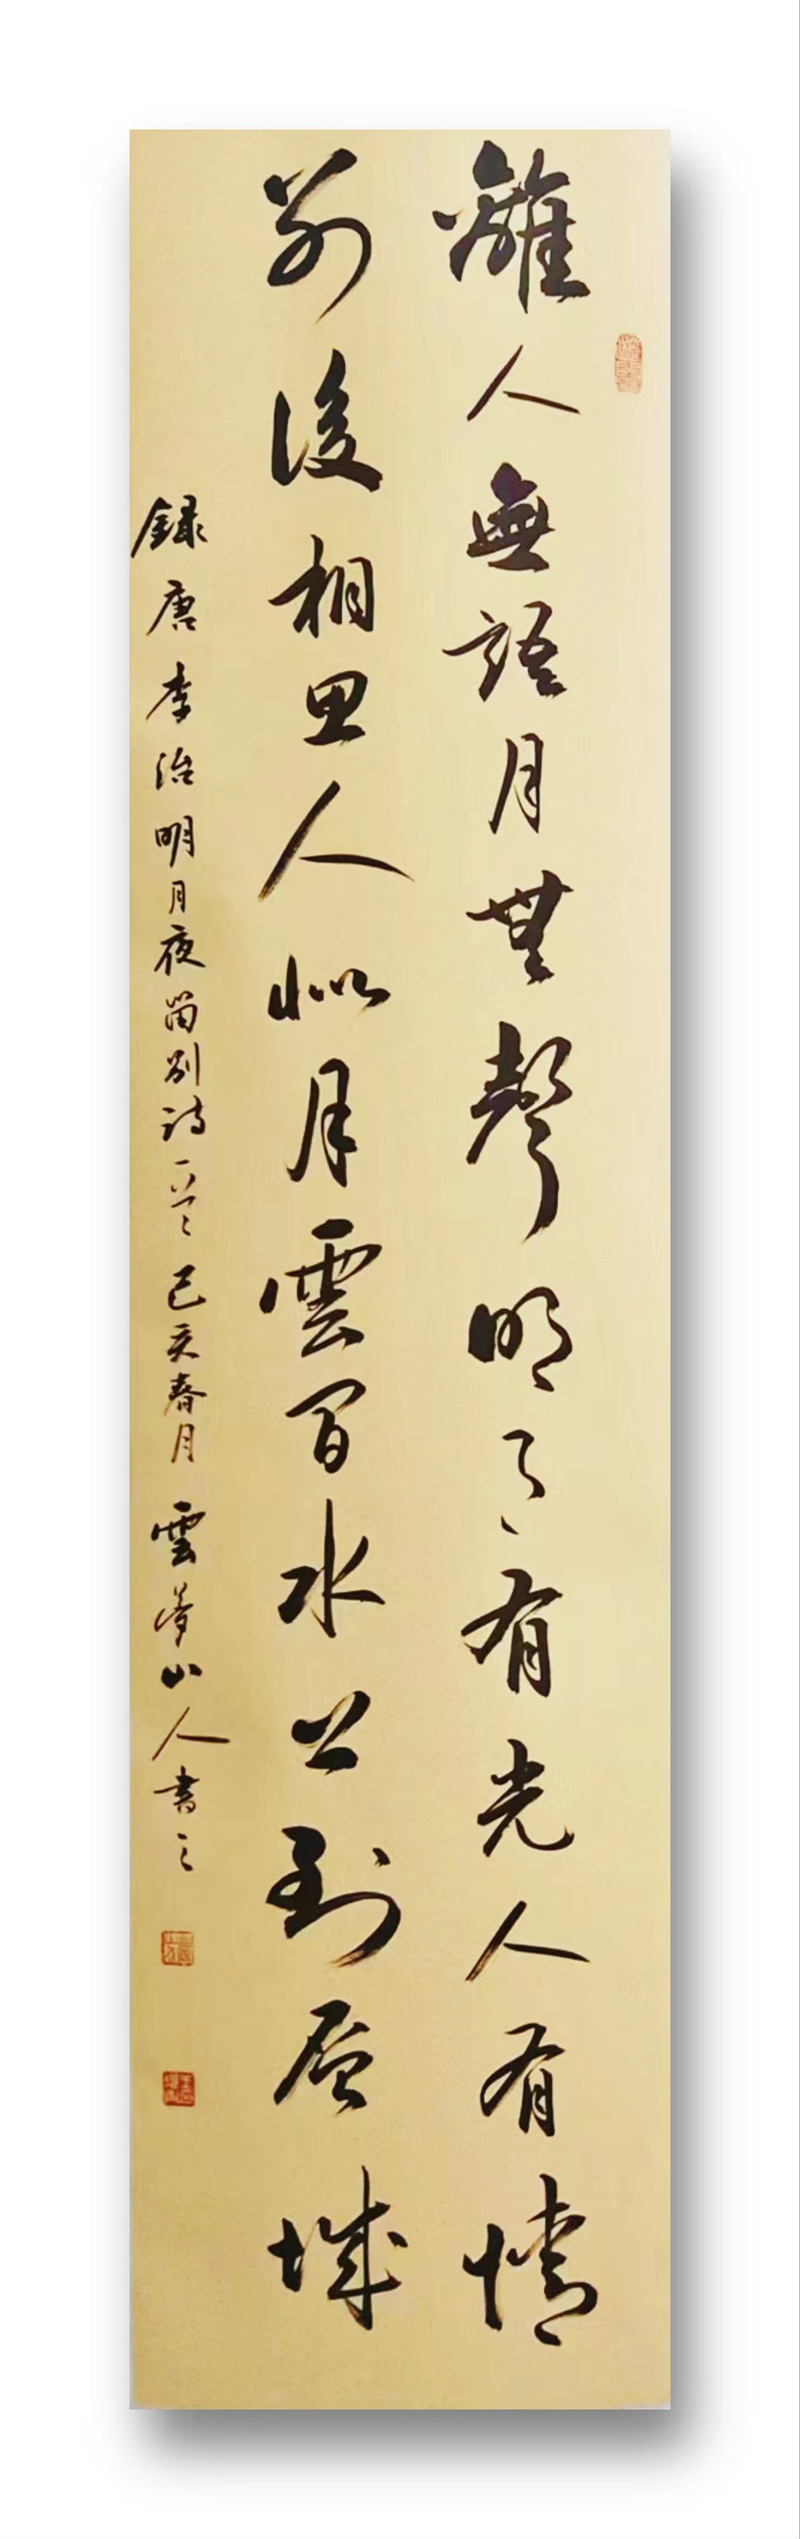 離人無語月無聲明月有光人有情
別後相思人似月雲間水上到層城
録唐李治明月夜留別詩一首己亥春月雲夢山人書之